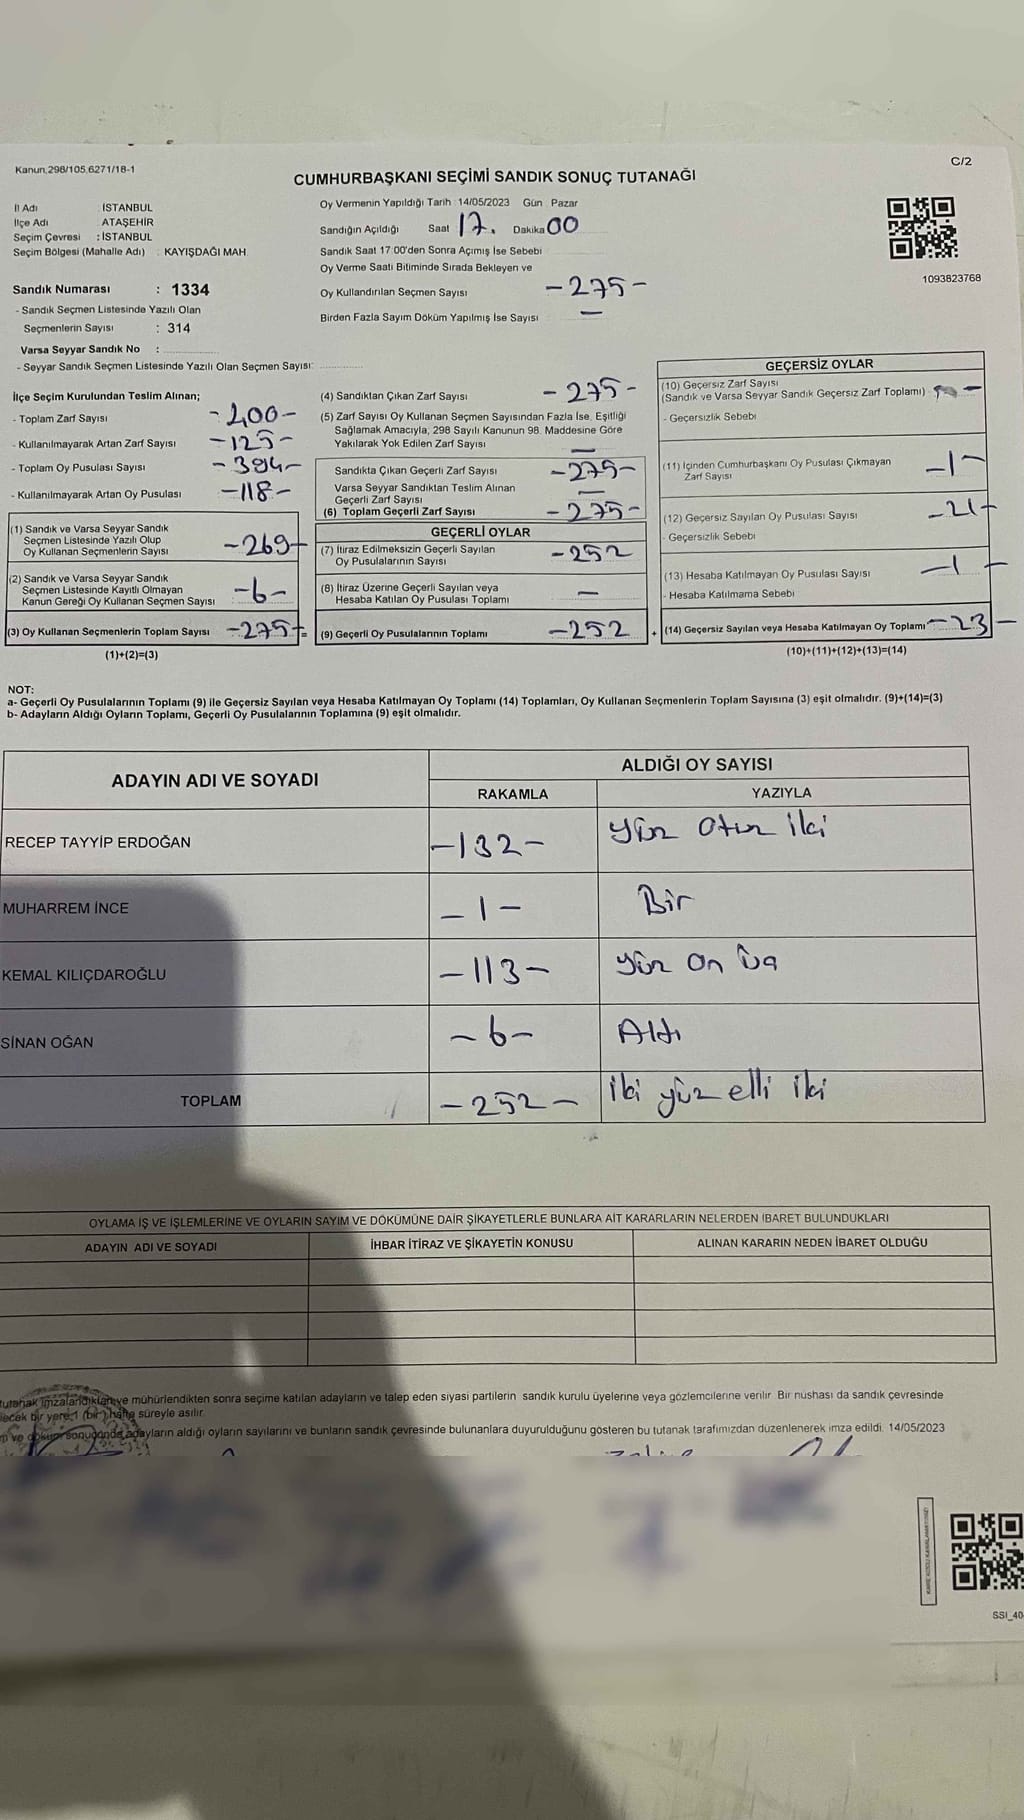 Kanun,298/105,6271/18-1
C/2
CUMHURBAŞKANI SEÇİMİ SANDIK SONUÇ TUTANAĞI
İl Adı : İSTANBUL
İlçe Adı : ATAŞEHİR
Seçim Çevresi : İSTANBUL
Seçim Bölgesi (Mahalle Adı) : KAYIŞDAĞI MAH.
Sandık Numarası : 1334
- Sandık Seçmen Listesinde Yazılı Olan
Seçmenlerin Sayısı : 314
Varsa Seyyar Sandık No :
- Seyyar Sandık Seçmen Listesinde Yazılı Olan Seçmen Sayısı:
Oy Vermenin Yapıldığı Tarih : 14/05/2023 Gün Pazar
Sandığın Açıldığı Saat 17. Dakika 00
Sandık Saat 17:00'den Sonra Açımış İse Sebebi
Oy Verme Saati Bitiminde Sırada Bekleyen ve
Oy Kullandırılan Seçmen Sayısı -275-
Birden Fazla Sayım Döküm Yapılmış İse Sayısı —
1093823768
İlçe Seçim Kurulundan Teslim Alınan;
- Toplam Zarf Sayısı -400-
- Kullanılmayarak Artan Zarf Sayısı -125-
- Toplam Oy Pusulası Sayısı -394-
- Kullanılmayarak Artan Oy Pusulası -118-
(1) Sandık ve Varsa Seyyar Sandık
Seçmen Listesinde Yazılı Olup
Oy Kullanan Seçmenlerin Sayısı -269-
(2) Sandık ve Varsa Seyyar Sandık
Seçmen Listesinde Kayıtlı Olmayan
Kanun Gereği Oy Kullanan Seçmen Sayısı -6-
(3) Oy Kullanan Seçmenlerin Toplam Sayısı -275-
(1)+(2)=(3)
(4) Sandıktan Çıkan Zarf Sayısı -275-
(5) Zarf Sayısı Oy Kullanan Seçmen Sayısından Fazla İse, Eşitliği
Sağlamak Amacıyla, 298 Sayılı Kanunun 98. Maddesine Göre
Yakılarak Yok Edilen Zarf Sayısı —
Sandıkta Çıkan Geçerli Zarf Sayısı -275-
Varsa Seyyar Sandıktan Teslim Alınan
Geçerli Zarf Sayısı —
(6) Toplam Geçerli Zarf Sayısı -275-
GEÇERLİ OYLAR
(7) İtiraz Edilmeksizin Geçerli Sayılan
Oy Pusulalarının Sayısı -252
(8) İtiraz Üzerine Geçerli Sayılan veya
Hesaba Katılan Oy Pusulası Toplamı —
(9) Geçerli Oy Pusulalarının Toplamı -252
=
+
GEÇERSİZ OYLAR
(10) Geçersiz Zarf Sayısı
(Sandık ve Varsa Seyyar Sandık Geçersiz Zarf Toplamı) —
- Geçersizlik Sebebi
(11) İçinden Cumhurbaşkanı Oy Pusulası Çıkmayan
Zarf Sayısı -1-
(12) Geçersiz Sayılan Oy Pusulası Sayısı -21-
- Geçersizlik Sebebi
(13) Hesaba Katılmayan Oy Pusulası Sayısı -1-
- Hesaba Katılmama Sebebi
(14) Geçersiz Sayılan veya Hesaba Katılmayan Oy Toplamı -23-
(10)+(11)+(12)+(13)=(14)
NOT:
a- Geçerli Oy Pusulalarının Toplamı (9) ile Geçersiz Sayılan veya Hesaba Katılmayan Oy Toplamı (14) Toplamları, Oy Kullanan Seçmenlerin Toplam Sayısına (3) eşit olmalıdır. (9)+(14)=(3)
b- Adayların Aldığı Oyların Toplamı, Geçerli Oy Pusulalarının Toplamına (9) eşit olmalıdır.
ADAYIN ADI VE SOYADI
ALDIĞI OY SAYISI
RAKAMLA YAZIYLA
RECEP TAYYİP ERDOĞAN -132- Yüz otuz iki
MUHARREM İNCE -1- Bir
KEMAL KILIÇDAROĞLU -113- Yüz on üç
SİNAN OĞAN -6- Altı
TOPLAM -252- İki yüz elli iki
OYLAMA İŞ VE İŞLEMLERİNE VE OYLARIN SAYIM VE DÖKÜMÜNE DAİR ŞİKAYETLERLE BUNLARA AİT KARARLARIN NELERDEN İBARET BULUNDUKLARI
ADAYIN ADI VE SOYADI İHBAR İTİRAZ VE ŞİKAYETİN KONUSU ALINAN KARARIN NEDEN İBARET OLDUĞU
tutanak imzalandıktan ve mühürlendikten sonra seçime katılan adayların ve talep eden siyasi partilerin sandık kurulu üyelerine veya gözlemcilerine verilir. Bir nüshası da sandık çevresinde
lecek bir yere 1 (bir) hafta süreyle asılır.
m ve döküm sonucunda adayların aldığı oyların sayılarını ve bunların sandık çevresinde bulunanlara duyurulduğunu gösteren bu tutanak tarafımızdan düzenlenerek imza edildi. 14/05/2023
SSI_40